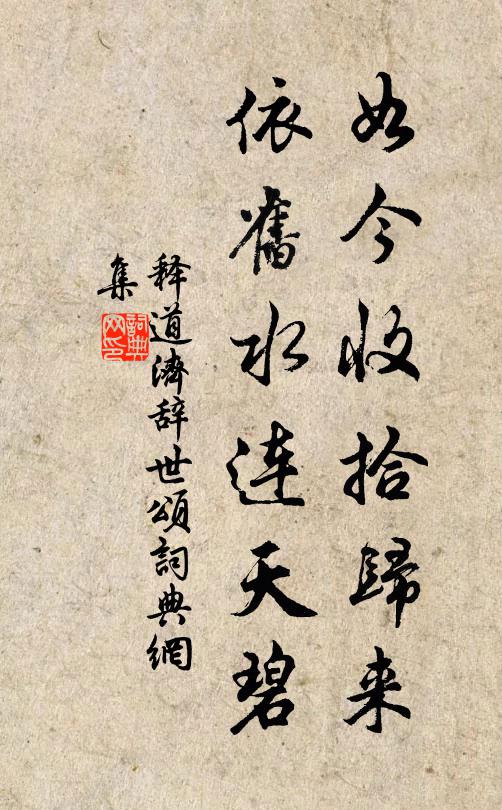 如今收拾歸来
依舊水連天碧
释道濟辞世頌詞典網
集
詞典
网印